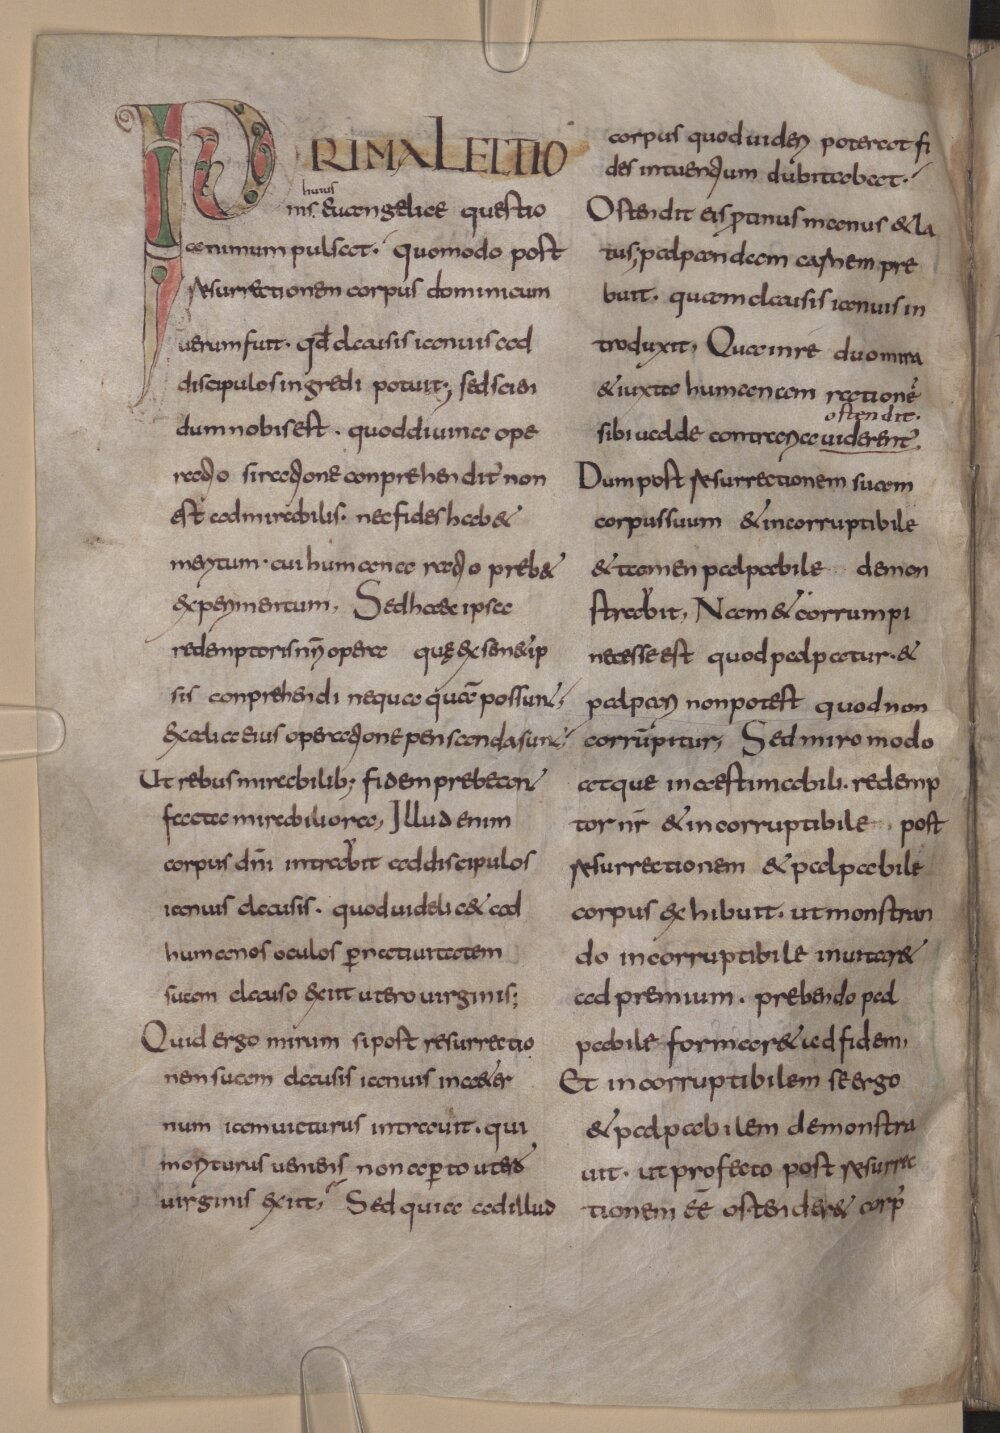 PRIMA LECTIO
huius
nis. Euangelicę questio
animum pulsat. quomodo post
resurrectionem corpus dominicum
uerum fuit. qđ clausis ianuis ad
discipulos ingredi potuit; sed scien
dum nobis est. quod diuina ope
ratio si ratione conprehenditur non
est admirabilis. nec fides hab&
meritum. cui humana ratio preb&
experimentum, Sed haec ipsa
redemptoris nr̄i opera quę ex sem&ip
sis conprehendi nequaquā possunt,
ex alia eius operatione pensanda sunt,
Ut rebus mirabilib; fidem prebeant
facta mirabiliora, Illud enim
corpus dn̄i intrabit ad discipulos
ianuis clausis. quod uidelic& ad
humanos oculos p̄ natiuitatem
suam clauso exiit utero uirginis;
Quid ergo mirum si post resurrectio
nem suam clausis ianuis in &er
num iam uicturus intrauit. qui
moriturus ueniens non aperto utero
uirginis exiit, Sed quia ad illud
corpus quod uideri poterat fi
des intuentium dubitabat.
Ostendit eis protinus manus & la
tus; palpandam carnem pre
buit. quam clausis ianuis in
troduxit, Qua in re duo mira
& iuxta humanam rationē
ostendit.
sibi ualde contraria uiderent.
Dum post resurrectionem suam
corpus suum & incorruptibile
& tamen palpabile demon
strabit, Nam & corrumpi
necesse est quod palpatur. &
palpari non potest quod non
corrūpitur, Sed miro modo
atque inaestimabili. redemp
tor nr̄ & incorruptibile post
resurrectionem & palpabile
corpus exhibuit. ut monstran
do incorruptibile inuitar&
ad premium. prebendo pal
pabile formar& ad fidem,
Et incorruptibilem se ergo
& palpabilem demonstra
uit. ut profecto post resurrec
tionem ēē ostender& corp̄